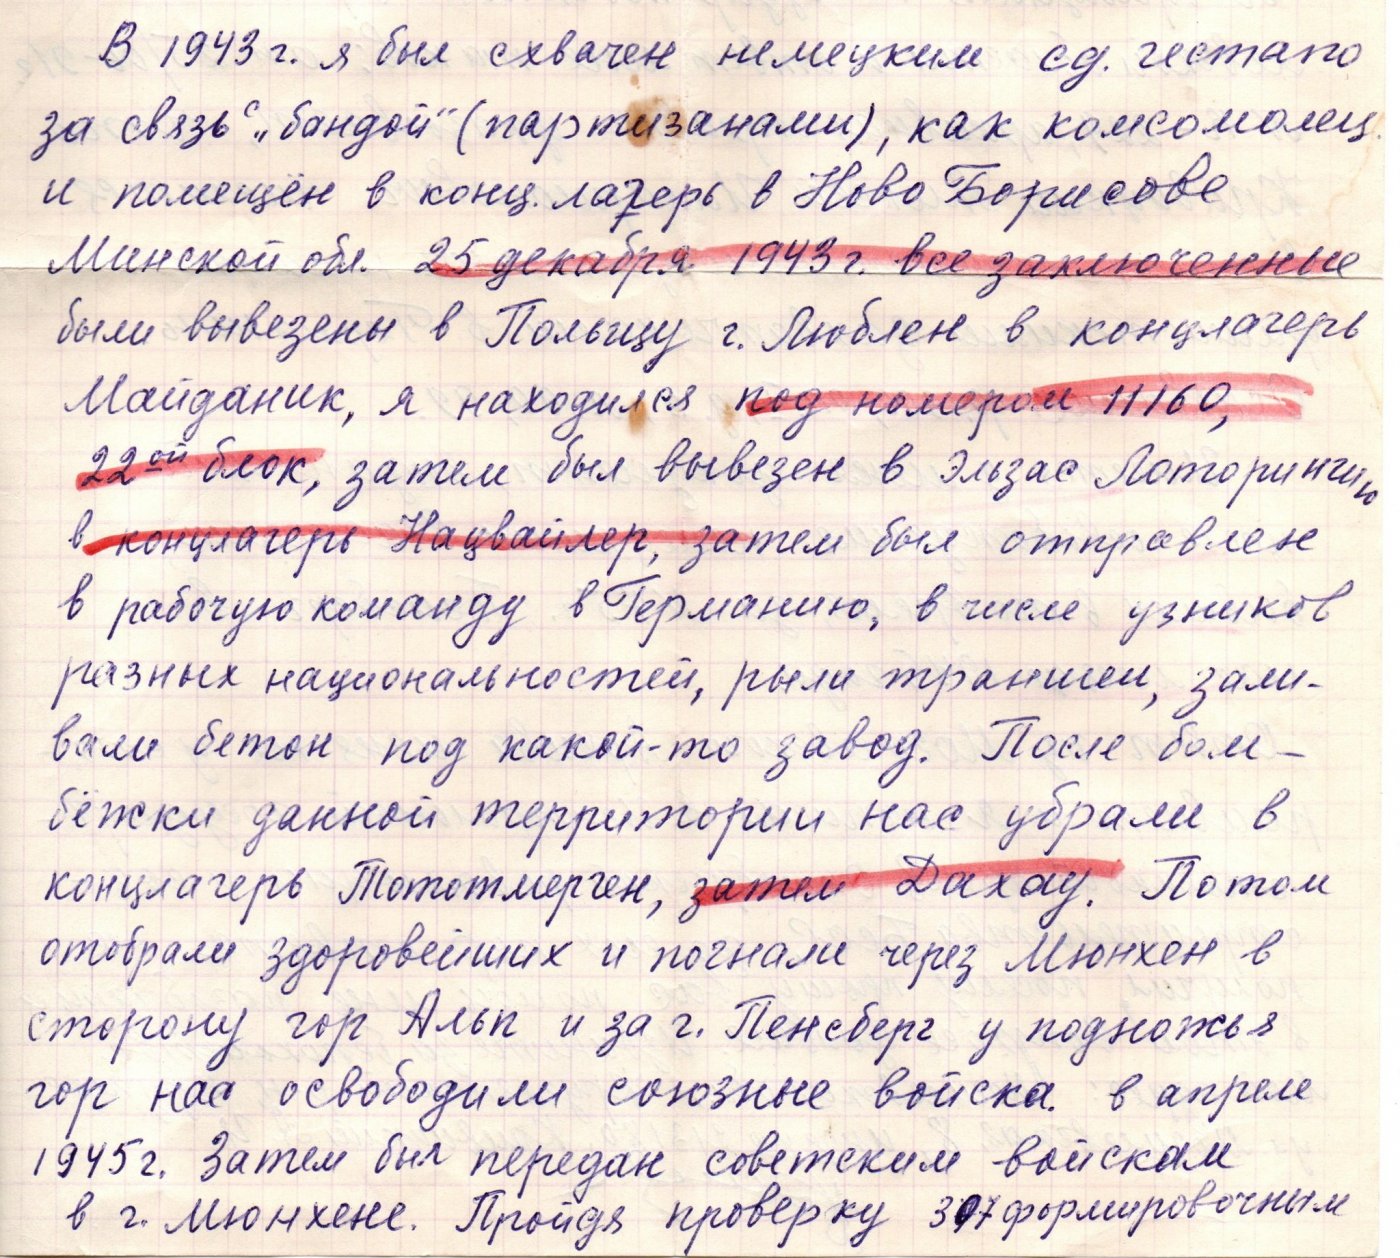 В 1943 г. я был схвачен немецким сд. гестапо
за связь с „бандой" (партизанами), как комсомолец
и помещён в конц. лагерь в Ново Борисове
Минской обл. 25 декабря 1943 г. все заключенные
были вывезены в Польщу г. Люблен в концлагерь
Майданик, я находился под номером 11160,
22ой блок, затем был вывезен в Эльзас Лоторингию
в концлагерь Нацвайлер, затем был отправлен
в рабочую команду в Германию, в числе узников
разных национальностей, рыли траншеи, зали-
вали бетон под какой-то завод. После бом-
бёжки данной территории нас убрали в
концлагерь Тототмерген, затем Дахау. Потом
отобрали здоровейших и погнали через Мюнхен в
сторону гор Альп и за г. Пенсберг у подножья
гор нас освободили союзные войска. в апреле
1945 г. Затем был передан советским войскам
в г. Мюнхене. Пройдя проверку 397 формировочным